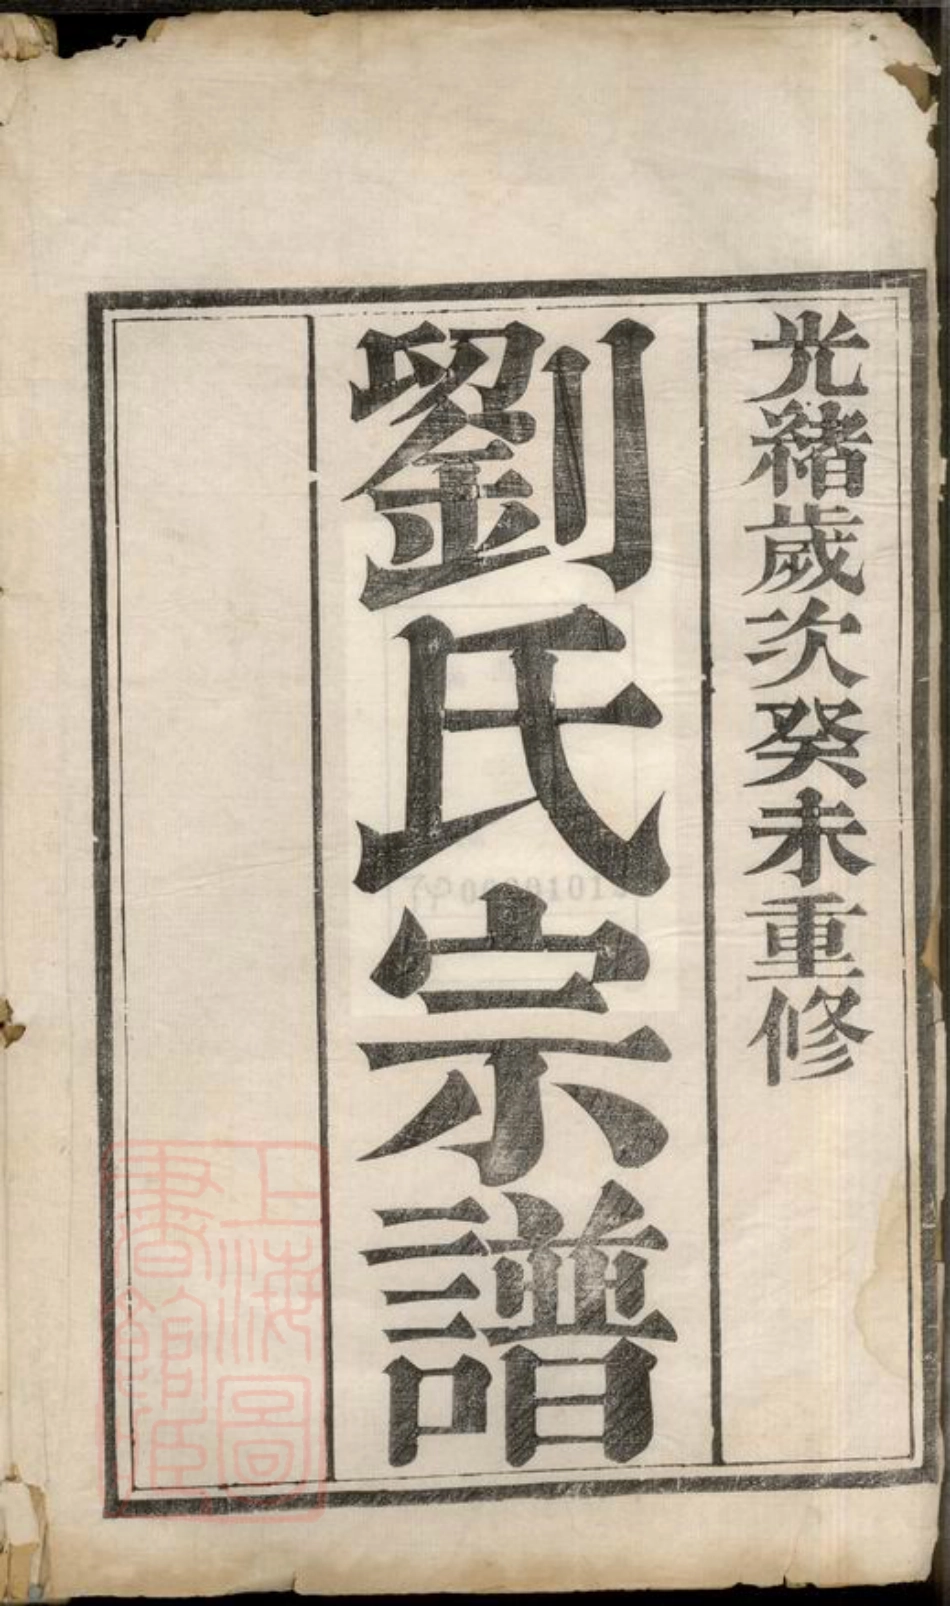 光緒歲次癸未重修
劉氏宗譜
上海圖
書館藏